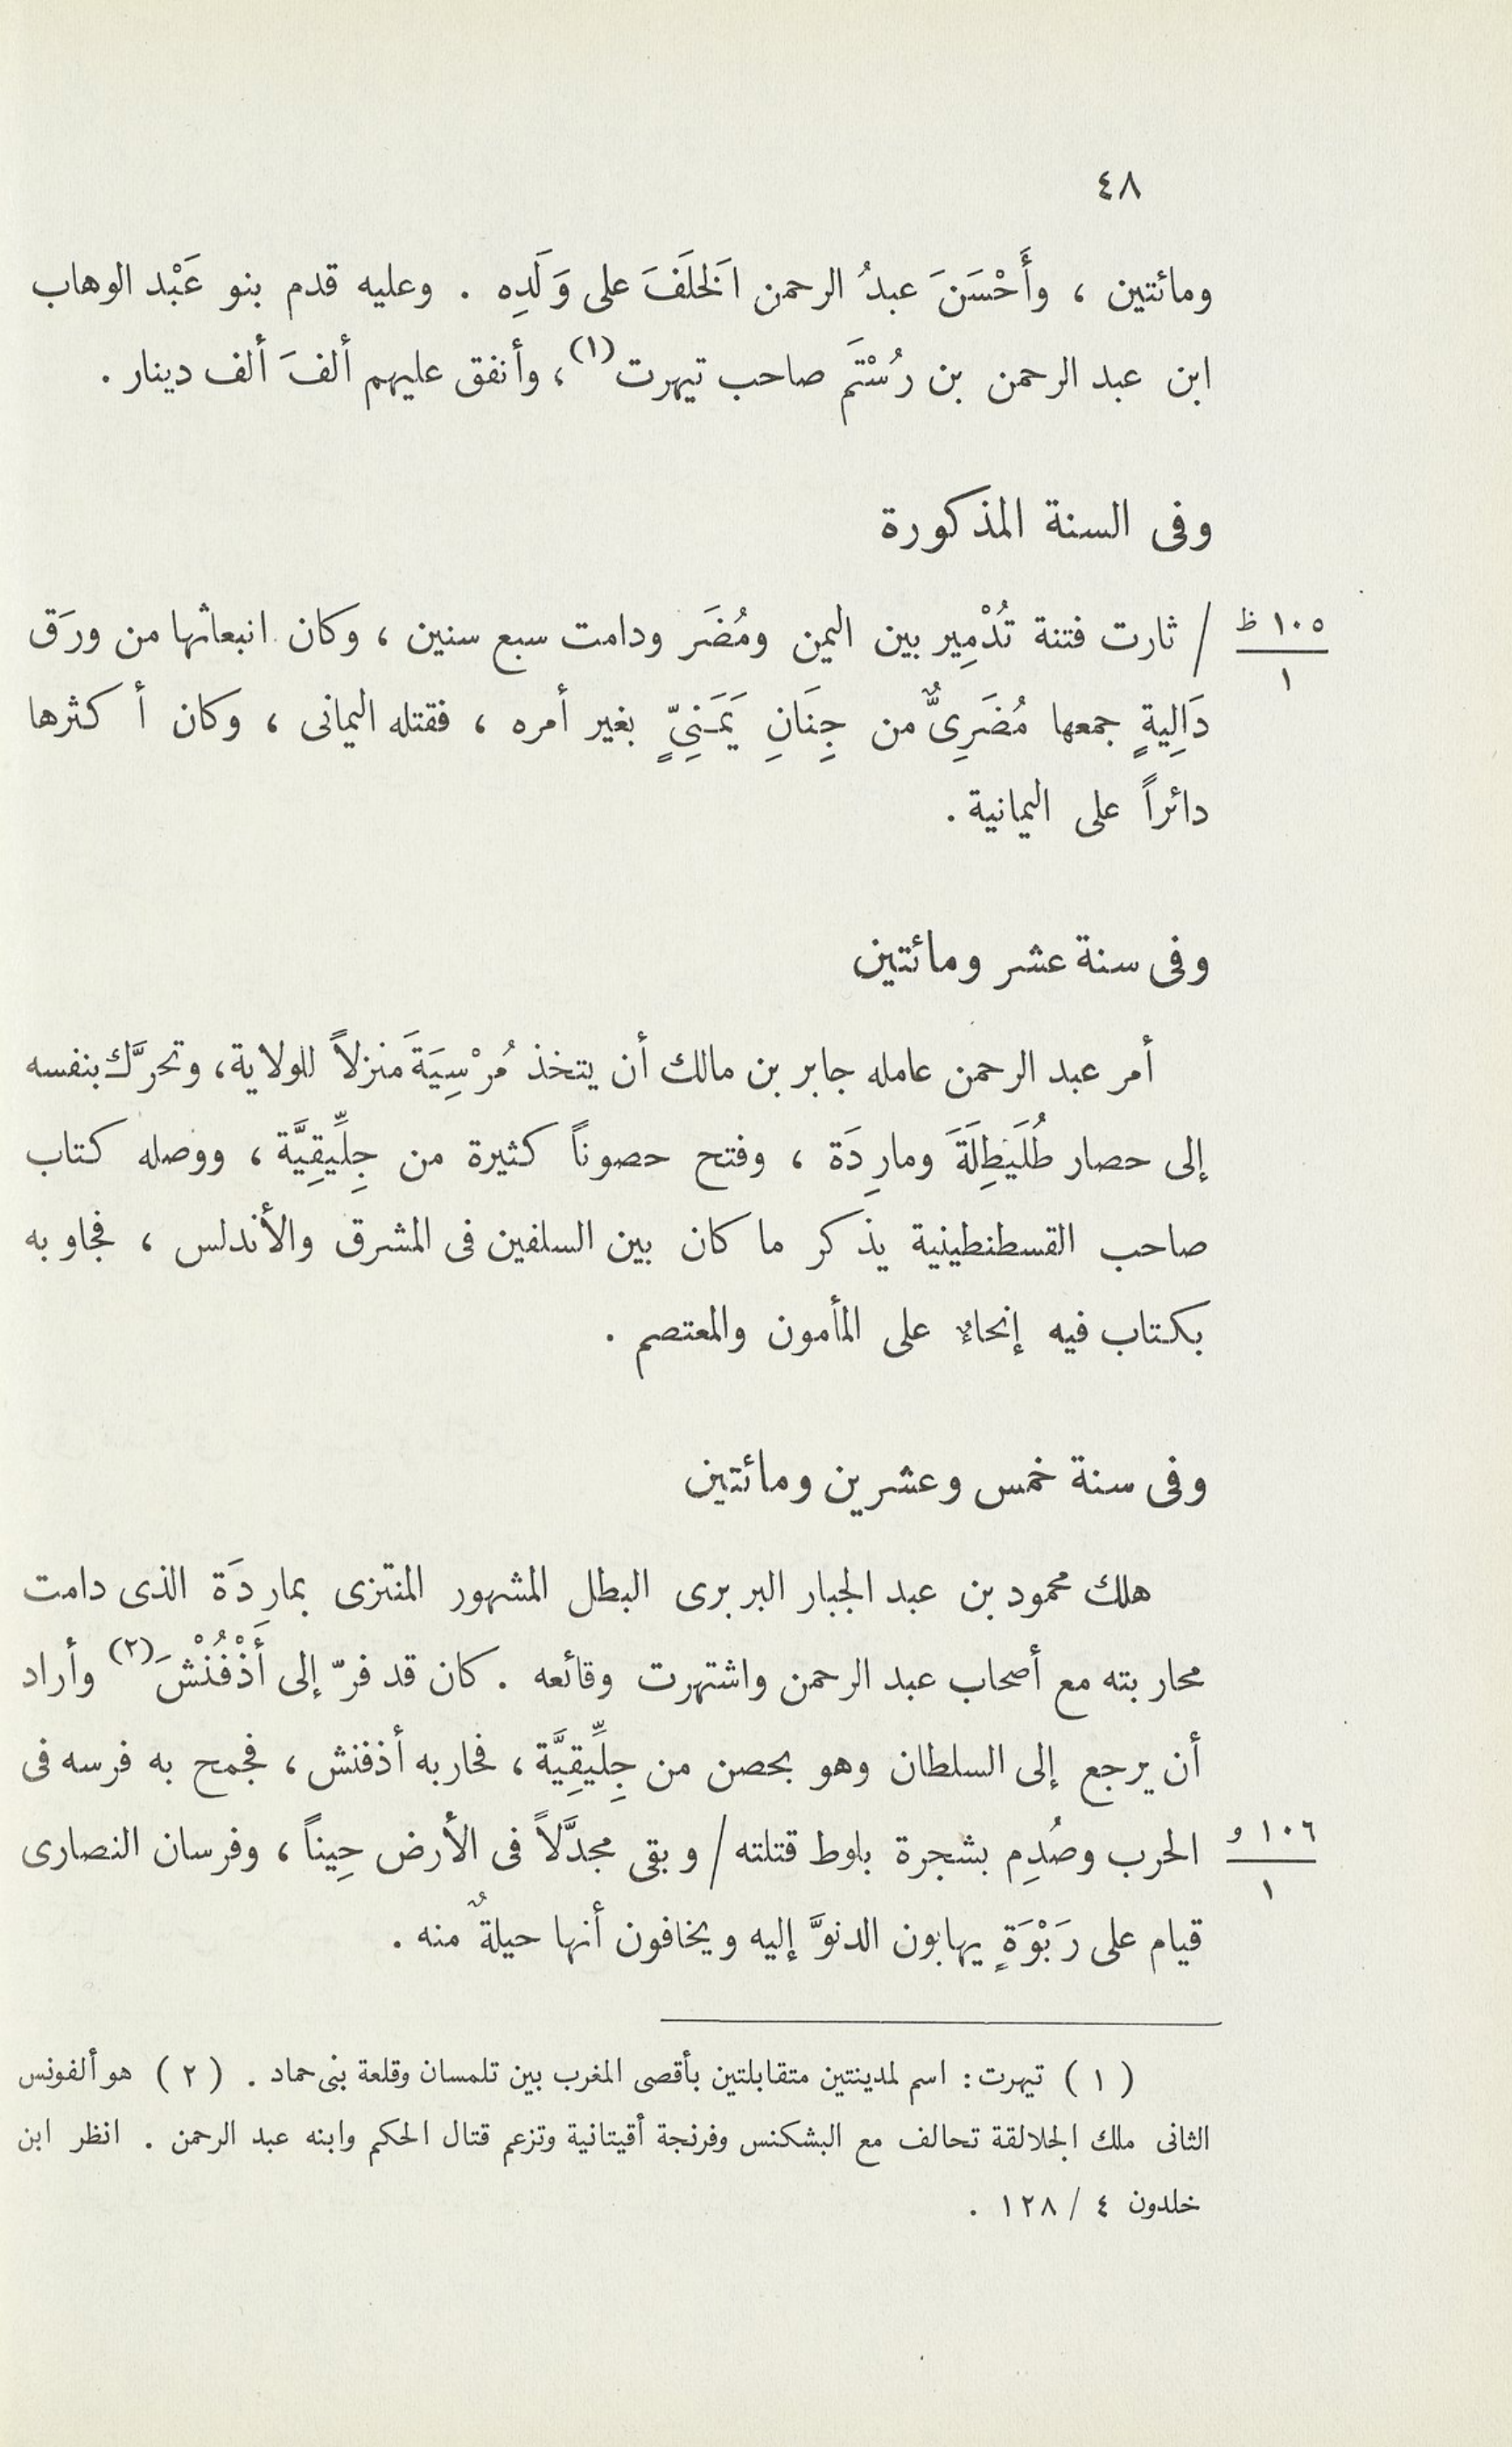 ٤٨
ومائتين ، وأَحْسَنَ عبدُ الرحمن الخَلَفَ على وَلَدِه . وعليه قدم بنو عَبْد الوهاب
ابن عبد الرحمن بن رُسْتَم صاحب تيهرت(١)، وأنفق عليهم ألفَ ألف دينار .
وفى السنة المذكورة
١٠٥ ظ / ثارت فتنة تُدْمِير بين اليمن ومُضَر ودامت سبع سنين ، وكان انبعاثها من ورَق
١
دَالِيةٍ جمعها مُضَرِىٌّ من جِنَانِ يَمَنِىٍّ بغير أمره ، فقتله اليمانى ، وكان أكثرها
دائراً على اليمانية .
وفى سنة عشر ومائتين
أمر عبد الرحمن عامله جابر بن مالك أن يتخذ مُرْسِيَةَ منزلاً للولاية، وتحرَّك بنفسه
إلى حصار طُلَيَطِلَةَ ومارِدَة ، وفتح حصوناً كثيرة من جِلِّيقِيَّة ، ووصله كتاب
صاحب القسطنطينية يذكر ما كان بين السلفين فى المشرق والأندلس ، فجاوبه
بكتاب فيه إنحاءٌ على المأمون والمعتصم .
وفى سنة خمس وعشرين ومائتين
هلك محمود بن عبد الجبار البربرى البطل المشهور المنتزى بمارِدَة الذى دامت
محاربته مع أصحاب عبد الرحمن واشتهرت وقائعه . كان قد فرّ إلى أَذْفُنْشَ(٢) وأراد
أن يرجع إلى السلطان وهو بحصن من جِلِّيقِيَّة ، فحاربه أذفنش ، فجمح به فرسه فى
١٠٦ و الحرب وصُدِم بشجرة بلوط قتلته / وبقى مجدَّلاً فى الأرض حِيناً ، وفرسان النصارى
١
قيام على رَبْوَةٍ يهابون الدنوَّ إليه ويخافون أنها حيلةٌ منه .
( ١ ) تيهرت : اسم لمدينتين متقابلتين بأقصى المغرب بين تلمسان وقلعة بنى حماد . ( ٢ ) هو ألفونس
الثانى ملك الجلالقة تحالف مع البشكنس وفرنجة أقيتانية وتزعم قتال الحكم وابنه عبد الرحمن . انظر ابن
خلدون ٤ / ١٢٨ .